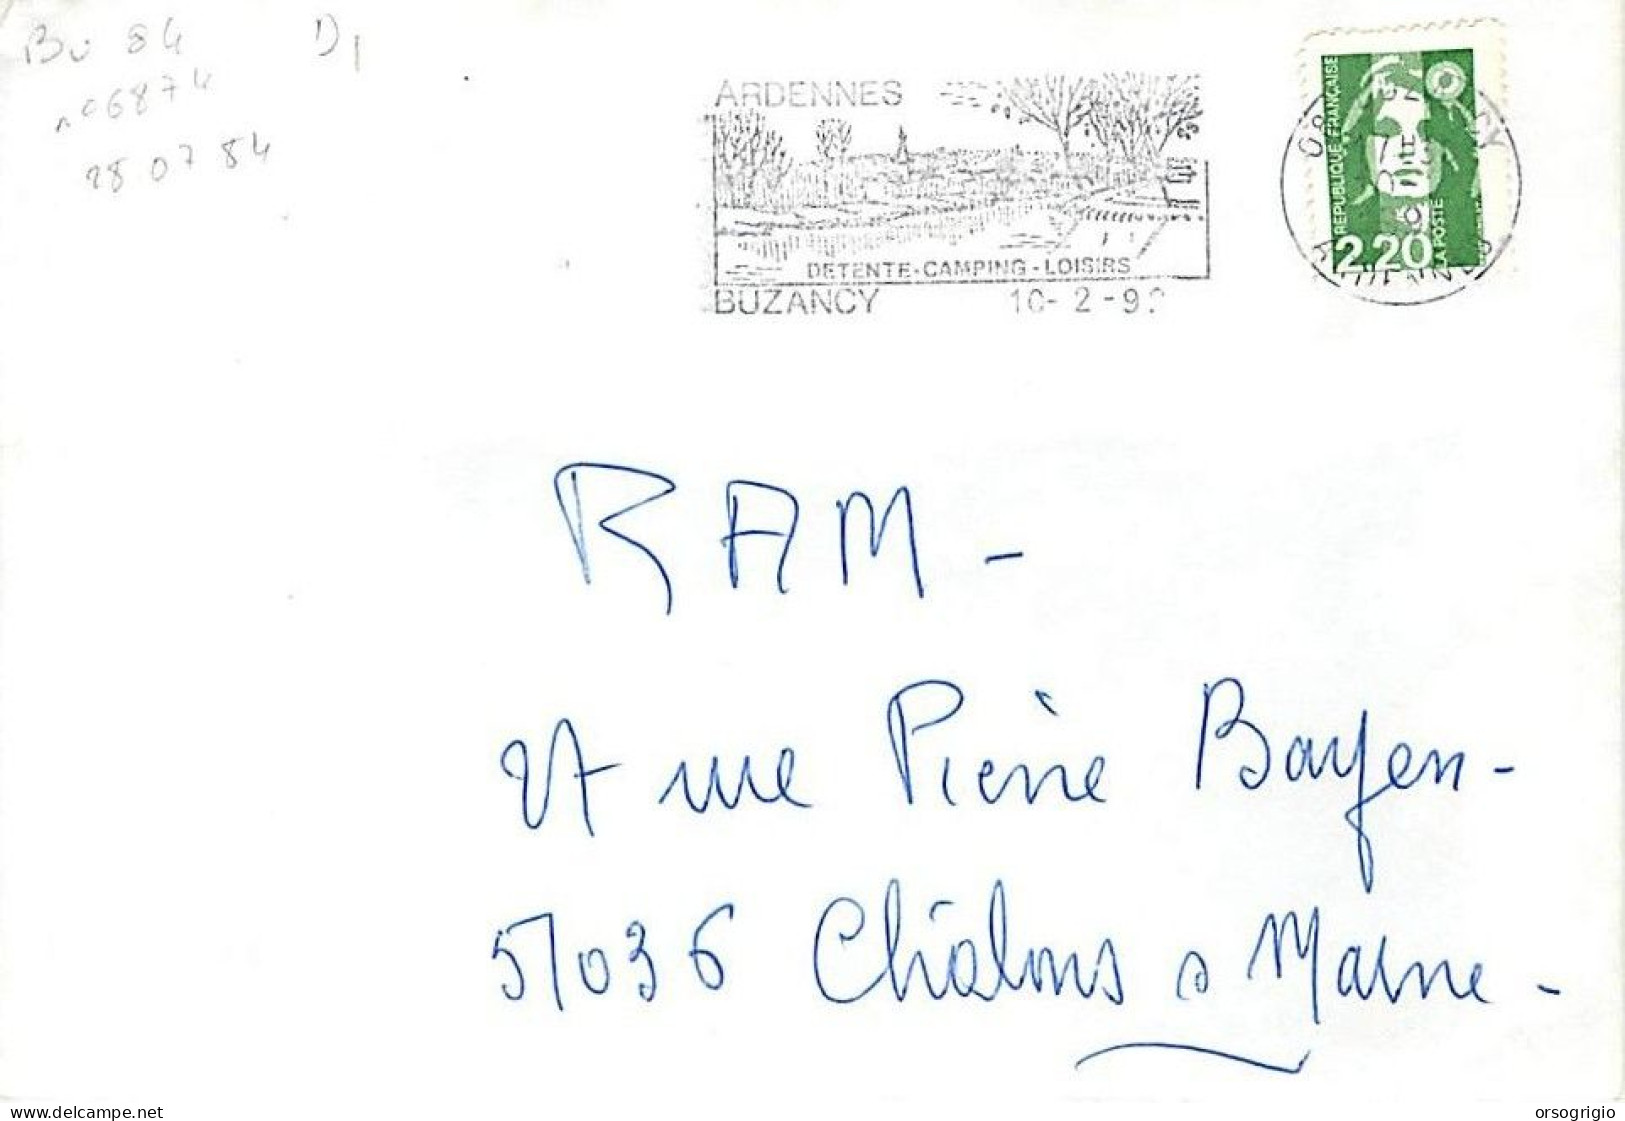 Bu 84 D1
n° 6874
28 07 84
ARDENNES
DETENTE - CAMPING - LOISIRS
BUZANCY 10 - 2 - 9
REPUBLIQUE FRANÇAISE
2,20
LA POSTE
08
ARDENNES
RAM -
27 rue Pierre Bayen -
51036 Châlons s Marne -
delcampe.net
orsogrigio